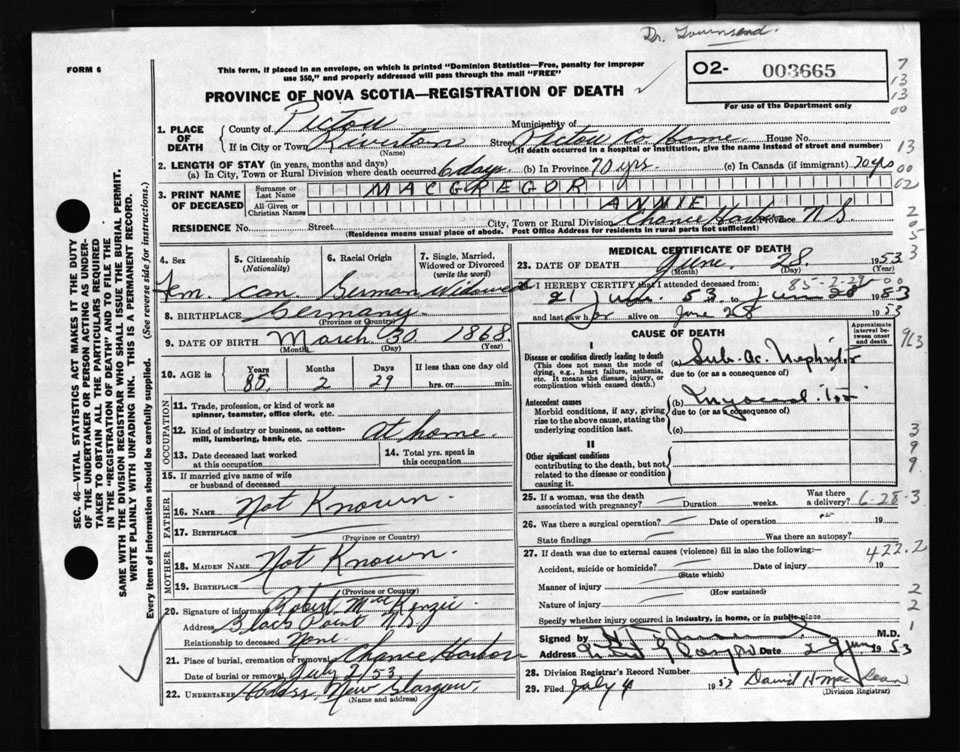 Dr. Townsend.
FORM 6
This form, if placed in an envelope, on which is printed "Dominion Statistics—Free, penalty for improper
use $50," and properly addressed will pass through the mail "FREE"
O2- 003665
For use of the Department only
PROVINCE OF NOVA SCOTIA—REGISTRATION OF DEATH
1. PLACE OF DEATH
County of Pictou Municipality of
If in City or Town Riverton Street Pictou Co. Home House No.
(Name) (If death occurred in a hospital or institution, give the name instead of street and number)
2. LENGTH OF STAY (in years, months and days)
(a) In City, Town or Rural Division where death occurred 6 days (b) In Province 70 yrs (c) In Canada (if immigrant) 70 yrs
3. PRINT NAME OF DECEASED
Surname or Last Name MACGREGOR
All Given or Christian Names ANNIE
RESIDENCE No. Street City, Town or Rural Division Chance Harbor N.S.
(Residence means usual place of abode. Post Office Address for residents in rural parts not sufficient)
4. Sex Fem.
5. Citizenship (Nationality) Can.
6. Racial Origin German
7. Single, Married, Widowed or Divorced (write the word) Widowed
8. BIRTHPLACE Germany
(Province or Country)
9. DATE OF BIRTH March 30 1868
(Month) (Day) (Year)
10. AGE in Years 85 Months 2 Days 29 If less than one day old hrs. or min.
OCCUPATION
11. Trade, profession, or kind of work as
spinner, teamster, office clerk, etc.
12. Kind of industry or business, as cotton-
mill, lumbering, bank, etc. At home.
13. Date deceased last worked
at this occupation
14. Total yrs. spent in
this occupation
15. If married give name of wife
or husband of deceased
FATHER
16. NAME Not Known.
17. BIRTHPLACE
(Province or Country)
MOTHER
18. MAIDEN NAME Not Known.
19. BIRTHPLACE
(Province or Country)
20. Signature of informant Robert MacKenzie
Address Black Point N.S.
Relationship to deceased None.
21. Place of burial, cremation or removal Chance Harbor
Date of burial or removal July 2/53
22. UNDERTAKER New Glasgow.
(Name and address)
MEDICAL CERTIFICATE OF DEATH
23. DATE OF DEATH June 28 1953
(Month) (Day) (Year)
85-2-29
24. I HEREBY CERTIFY that I attended deceased from:
21 53 to June 28 1953
and last saw her alive on June 28 1953
CAUSE OF DEATH
Approximate interval between onset and death
I
Disease or condition directly leading to death
(This does not mean the mode of
dying, e.g., heart failure, asthenia,
etc. It means the disease, injury, or
complication which caused death.)
(a) Sub. Ac. Nephritis
due to (or as a consequence of)
Antecedent causes
Morbid conditions, if any, giving
rise to the above cause, stating the
underlying condition last.
(b) Myocarditis
due to (or as a consequence of)
(c)
II
Other significant conditions
contributing to the death, but not
related to the disease or condition
causing it.
25. If a woman, was the death
associated with pregnancy? Duration weeks. Was there a delivery? 6-28-3
26. Was there a surgical operation? Date of operation 19
State findings Was there an autopsy?
27. If death was due to external causes (violence) fill in also the following: 422.2
Accident, suicide or homicide? Date of injury 19
(State which)
Manner of injury
(How sustained)
Nature of injury
Specify whether injury occurred in industry, in home, or in public place
Signed by M.D.
Address New Glasgow Date 29 June 1953
28. Division Registrar's Record Number
29. Filed July 4 1953 David H. MacLean
(Division Registrar)
SEC. 46—VITAL STATISTICS ACT MAKES IT THE DUTY
OF THE UNDERTAKER OR PERSON ACTING AS UNDER-
TAKER TO OBTAIN ALL THE PARTICULARS REQUIRED
IN THE "REGISTRATION OF DEATH" AND TO FILE THE
SAME WITH THE DIVISION REGISTRAR WHO SHALL ISSUE THE BURIAL PERMIT.
WRITE PLAINLY WITH UNFADING INK. THIS IS A PERMANENT RECORD.
Every item of information should be carefully supplied. (See reverse side for instructions.)